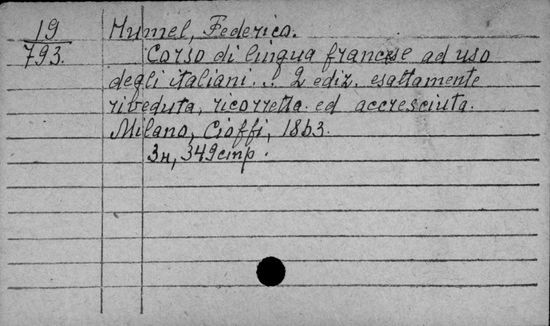 19
793.
Mumel, Federico.
Corso di lingua francese ad uso
degli italiani... 2 ediz. esattamente
riveduta, ricorretta ed accresciuta.
Milano, Cioffi, 1863.
3н, 349 стр.